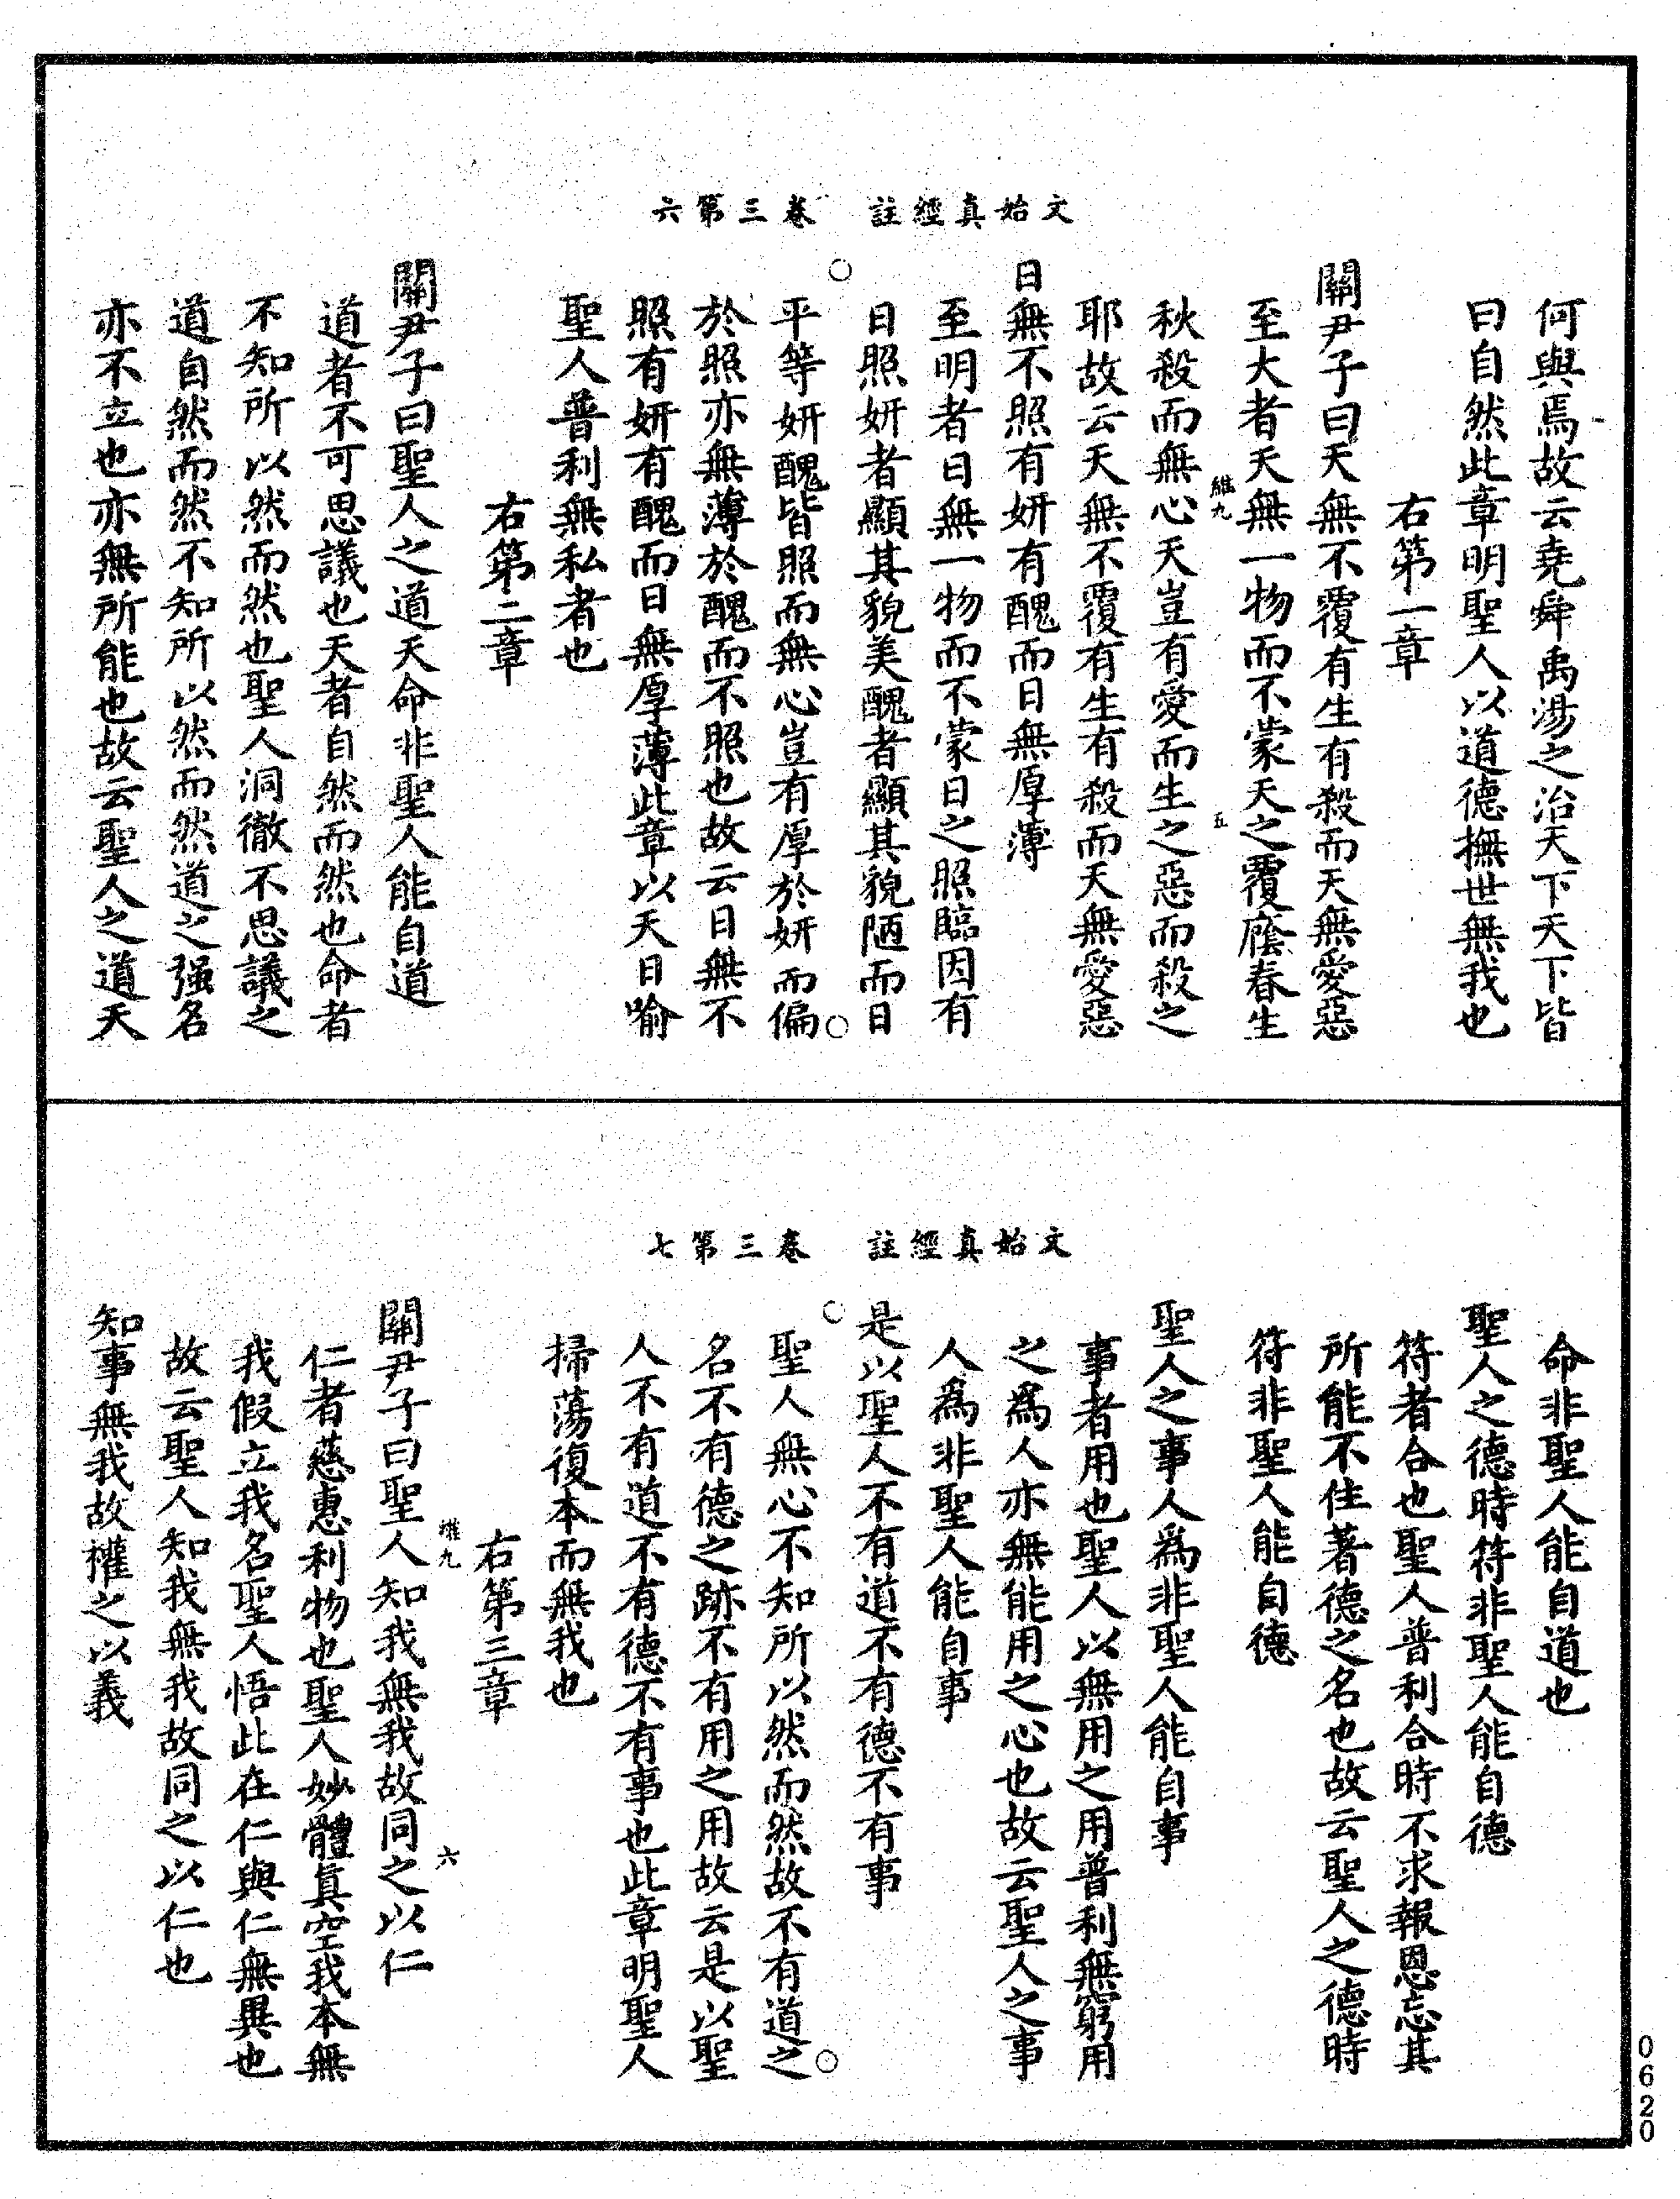 文始真經註　卷三第六
何與焉故云堯舜禹湯之治天下天下皆
曰自然此章明聖人以道德撫世無我也
右第一章
關尹子曰天無不覆有生有殺而天無愛惡
至大者天無一物而不蒙天之覆廕春生
維九
五
秋殺而無心天豈有愛而生之惡而殺之
耶故云天無不覆有生有殺而天無愛惡
日無不照有妍有醜而日無厚薄
至明者日無一物而不蒙日之照臨因有
日照妍者顯其貌美醜者顯其貌陋而日
平等妍醜皆照而無心豈有厚於妍而偏
於照亦無薄於醜而不照也故云日無不
照有妍有醜而日無厚薄此章以天日喻
聖人普利無私者也
右第二章
關尹子曰聖人之道天命非聖人能自道
道者不可思議也天者自然而然也命者
不知所以然而然也聖人洞徹不思議之
道自然而然不知所以然而然道之强名
亦不立也亦無所能也故云聖人之道天
文始真經註　卷三第七
命非聖人能自道也
聖人之德時符非聖人能自德
符者合也聖人普利合時不求報恩忘其
所能不住著德之名也故云聖人之德時
符非聖人能自德
聖人之事人為非聖人能自事
事者用也聖人以無用之用普利無窮用
之為人亦無能用之心也故云聖人之事
人為非聖人能自事
是以聖人不有道不有德不有事
聖人無心不知所以然而然故不有道之
名不有德之跡不有用之用故云是以聖
人不有道不有德不有事也此章明聖人
掃蕩復本而無我也
右第三章
維九
六
關尹子曰聖人知我無我故同之以仁
仁者慈惠利物也聖人妙體真空我本無
我假立我名聖人悟此在仁與仁無異也
故云聖人知我無我故同之以仁也
知事無我故權之以義
0620